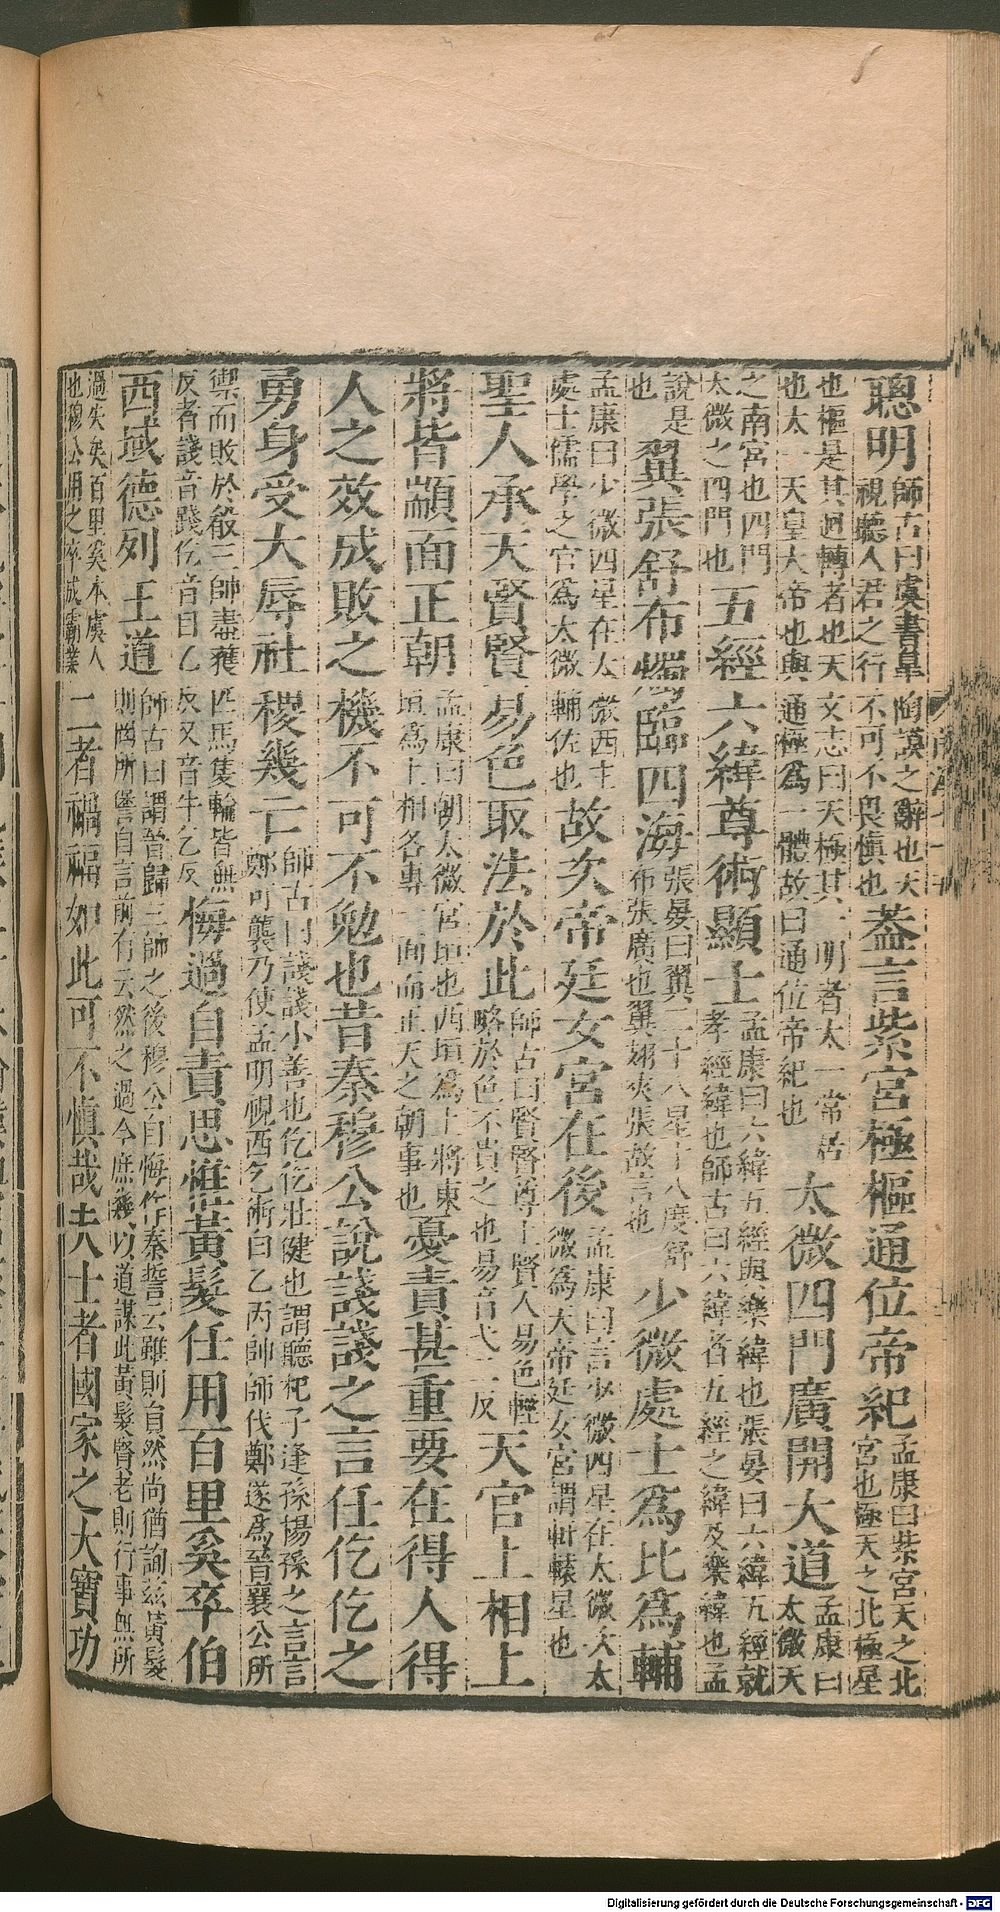 聰明師古曰虞書臯陶謨之辭也天視聽人君之行不可不畏愼也葢言紫宮極樞通位帝紀孟康曰紫宮天之北宮也極天之北極星
也樞是其迴轉者也天文志曰天極其一明者太一常居也太一天皇大帝也與通極爲一體故曰通位帝紀也太微四門廣開大道孟康曰太微天
之南宮也四門太微之四門也五經六緯尊術顯士孟康曰六緯五經與樂緯也張晏曰六緯五經就孝經緯也師古曰六緯者五經之緯及樂緯也孟
說是也翼張舒布燭臨四海張晏曰翼二十八星十八度舒布張廣也翼翅夾張故言也少微處士爲比爲輔
孟康曰少微四星在太微西主處士儒學之官爲太微輔佐也故次帝廷女宮在後孟康曰言少微四星在太微次太微爲大帝廷女宮謂軒轅星也
聖人承天賢賢易色取法於此師古曰賢賢尊上賢人易色輕略於色不貴之也易音弋二反天官上相上
將皆顓面正朝孟康曰朝太微宮垣也西垣爲上將東垣爲上相各專一面而正天之朝事也憂責甚重要在得人得
人之效成敗之機不可不勉也昔秦穆公說諓諓之言任仡仡之
勇身受大辱社稷幾亡師古曰諓諓小善也仡仡壯健也謂聽杞子逢孫楊孫之言言鄭可襲乃使孟明視西乞術白乙丙帥師伐鄭遂爲晉襄公所
禦而敗於殽三帥盡獲匹馬隻輪皆無反者諓音踐仡音曰乙反又音牛乞反悔過自責思惟黃髮任用百里奚卒伯
西域德列王道師古曰謂晉歸三帥之後穆公自悔作秦誓云雖則員然尚猶詢茲黃髮則罔所愆自言前有云然之過今庶幾以道謀此黃髮賢老則行事無所
過失矣百里奚本虞人也穆公用之卒成霸業二者禍福如此可不愼哉夫士者國家之大寶功
Digitalisierung gefördert durch die Deutsche Forschungsgemeinschaft - DFG